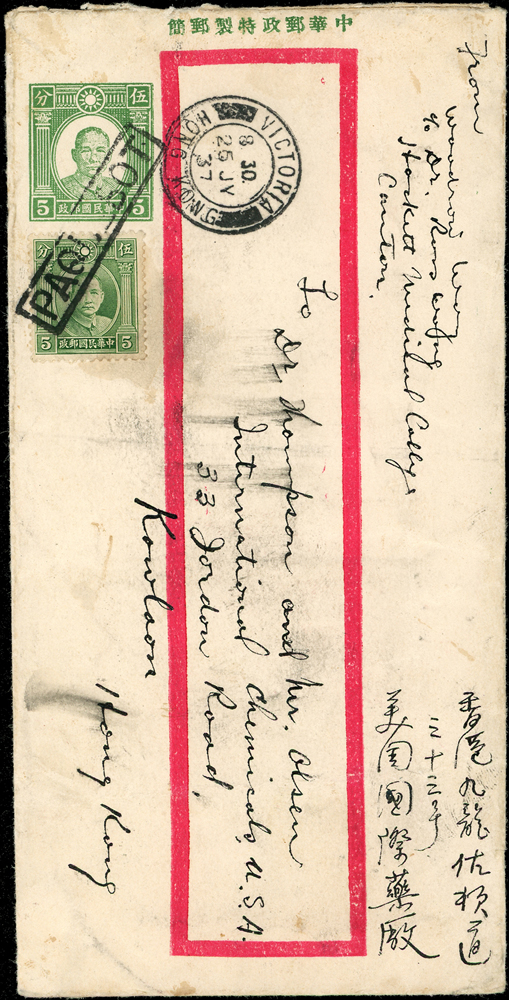 中華郵政特製郵簡
分 伍
5 中華民國郵政 5
分 伍
5 中華民國郵政 5
PAQUEBOT
VICTORIA
8 30
25 JY
37
HONG KONG
From
c/o Dr.
Hackett Medical College
Canton.
To
Dr. Thompson and Mr. Olsen
International Chemicals, U.S.A.
33 Jordon Road,
Kowloon
Hong Kong
香港九龍佐頓道
三十三号
美国國際藥廠